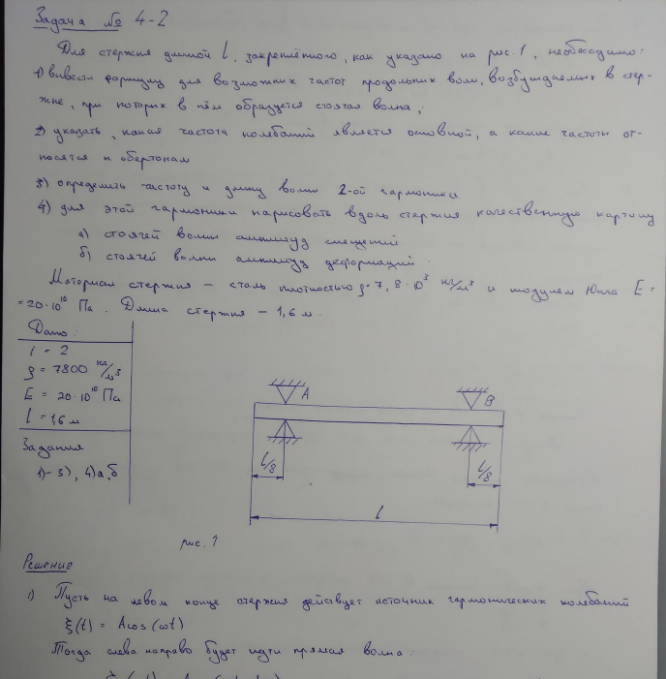 Задача № 4-2
Для стержня длиной l, закреплённого, как указано на рис. 1, необходимо:
1) вывести формулу для возможных частот продольных волн, возбуждаемых в стер-
жне, при которых в нём образуется стоячая волна,
2) указать, какая частота колебаний является основной, а какие частоты от-
носятся к обертонам
3) определить частоту и длину волны 2-ой гармоники
4) для этой гармоники нарисовать вдоль стержня качественную картину
а) стоячей волны амплитуд смещений
б) стоячей волны амплитуд деформаций.
Материал стержня - сталь плотностью ρ=7,8·10³ кг/м³ и модулем Юнга E=
=20·10¹⁰ Па. Длина стержня - 1,6 м.
Дано:
i = 2
ρ = 7800 кг/м³
E = 20·10¹⁰ Па
l = 1,6 м
Задания
1)-3), 4)а,б
A
B
l/8
l/8
l
рис. 1
Решение
1) Пусть на левом конце стержня действует источник гармонических колебаний
ξ(t) = Acos(ωt)
Тогда слева направо будет идти прямая волна: